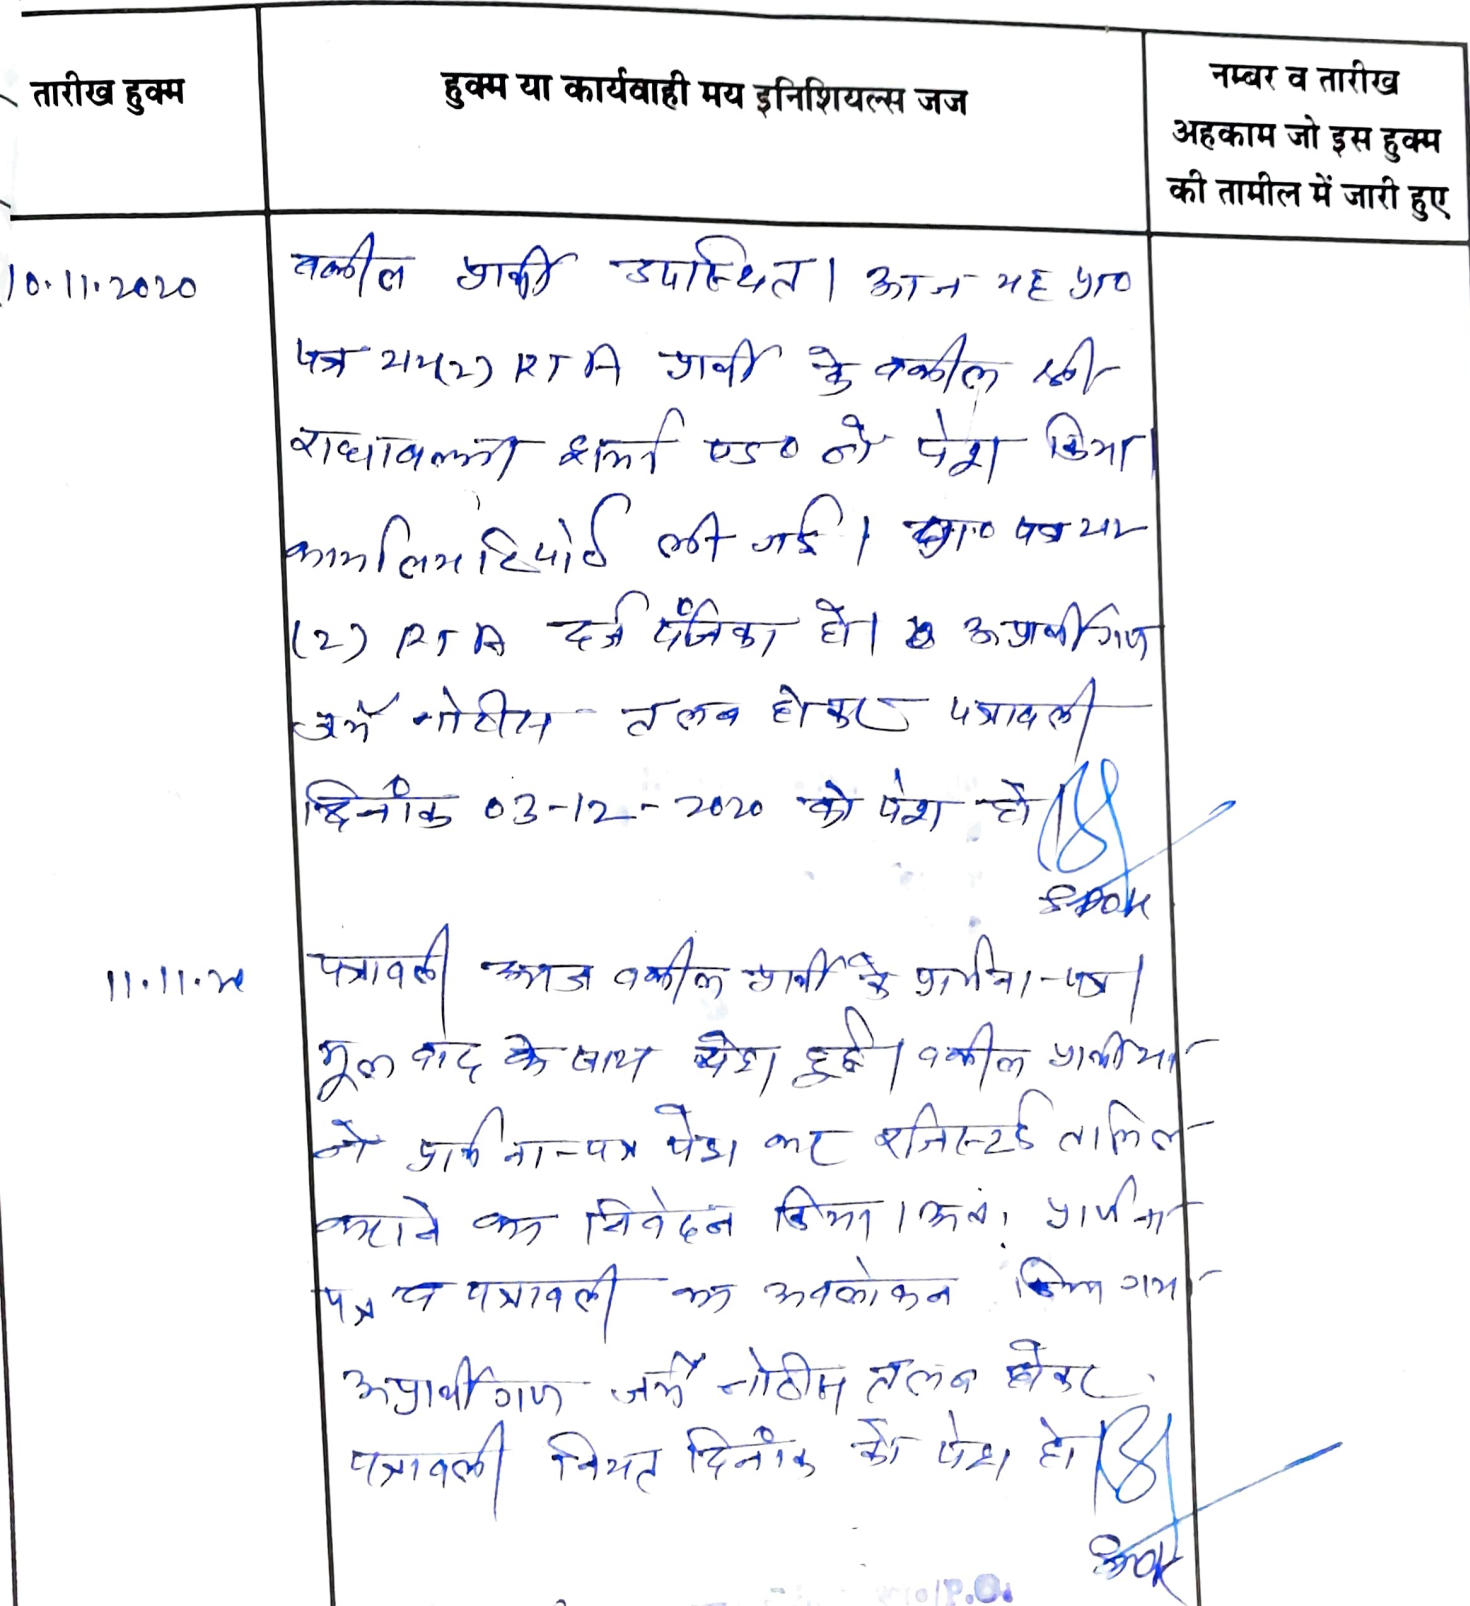 तारीख हुक्म
हुक्म या कार्यवाही मय इनिशियल्स जज
नम्बर व तारीख
अहकाम जो इस हुक्म
की तामील में जारी हुए
10.11.2020
वकील प्रार्थी उपस्थित। आज यह प्रा०
पत्र (2) RTA प्रार्थी के वकील श्री
राधावल्लभ शर्मा एड० ने पेश किया।
कार्यालय रिपोर्ट ली गई। प्रा० पत्र
(2) RTA दर्ज पंजिका हो। अप्रार्थीगण
जर्ये नोटीस तलब होकर पत्रावली
दिनांक 03-12-2020 को पेश हो।
11.11.20
पत्रावली आज वकील प्रार्थी के प्रार्थना-पत्र।
मूल वाद के साथ पेश हुई। वकील प्रार्थीया
ने प्रार्थना-पत्र पेश कर रजिस्टर्ड तामिल
कराने का निवेदन किया। अतः प्रार्थना
पत्र व पत्रावली का अवलोकन किया गया
अप्रार्थीगण जर्ये नोटीस तलब होकर
पत्रावली नियत दिनांक को पेश हो।
P.O.